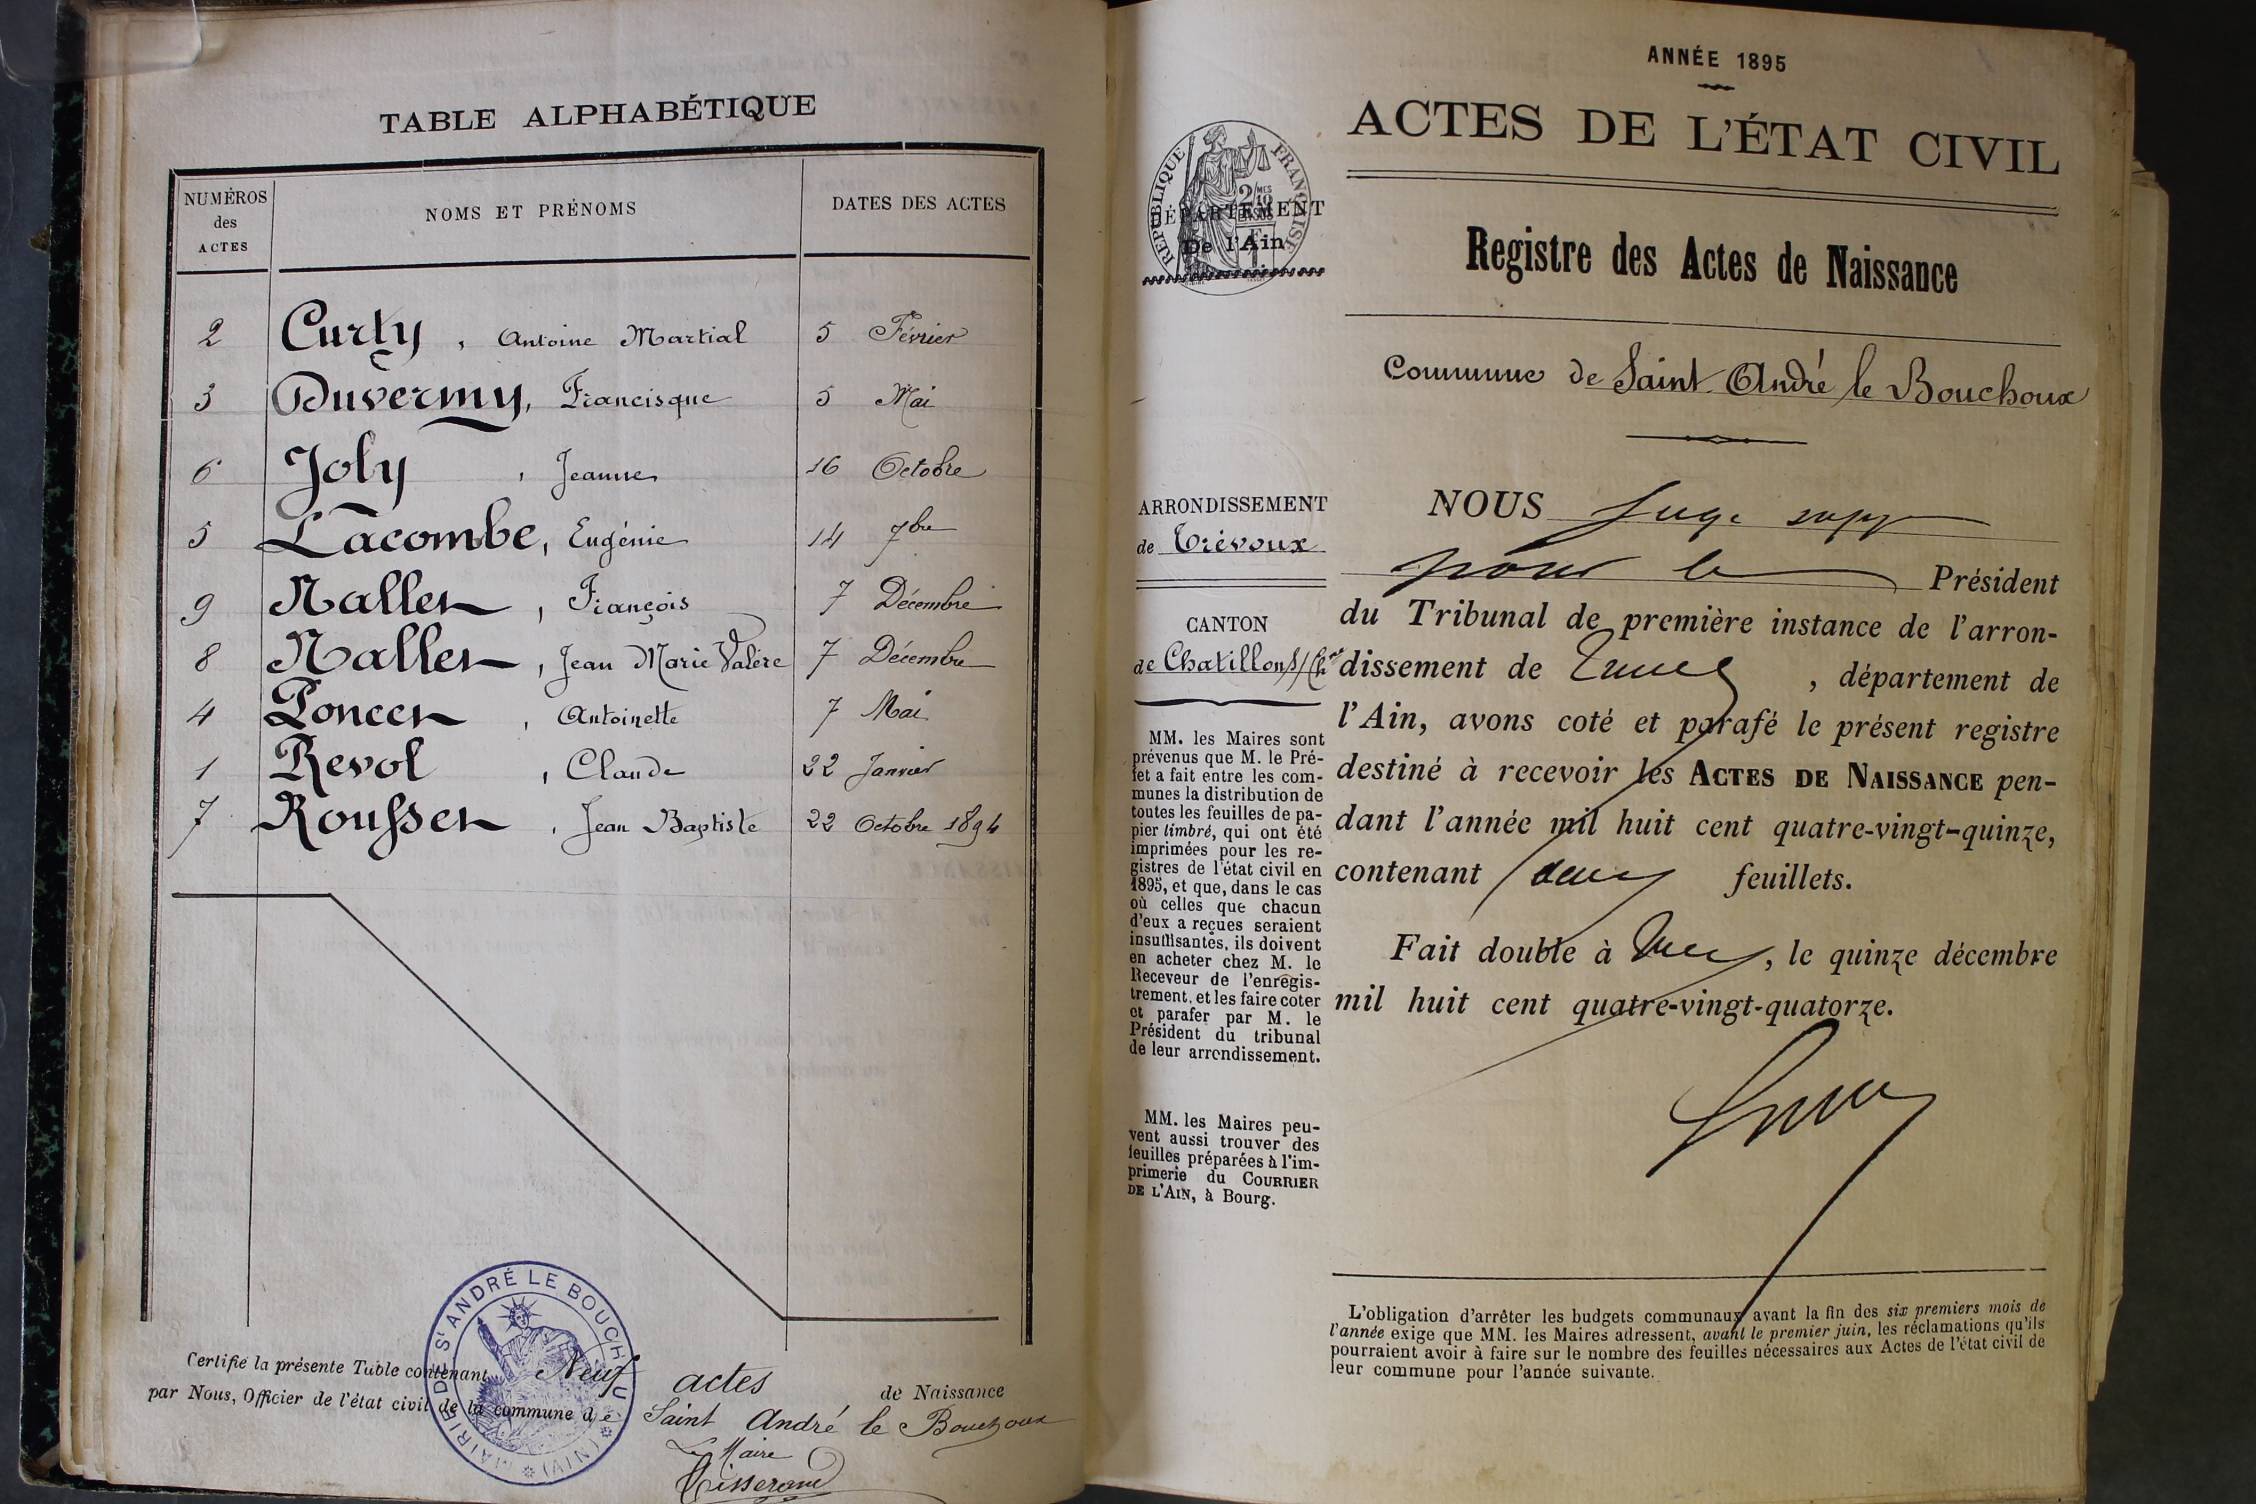 TABLE ALPHABÉTIQUE
NUMÉROS
des
ACTES
NOMS ET PRÉNOMS
DATES DES ACTES
2 Curty, Antoine Martial 5 Février
3 Duvermy, Francisque 5 Mai
6 Joly, Jeanne 16 Octobre
5 Lacombe, Eugénie 14 7bre
9 Nallet, François 7 Décembre
8 Nallet, Jean Marie Valère 7 Décembre
4 Poncet, Antoinette 7 Mai
1 Revol, Claude 22 Janvier
7 Rousset, Jean Baptiste 22 Octobre 1894
Certifié la présente Table contenant Neuf actes de Naissance
par Nous, Officier de l'état civil de la commune de Saint André le Bouchoux
Le Maire
Tisserand
MAIRIE DE ST ANDRÉ LE BOUCHOUX (AIN)
ANNÉE 1895
ACTES DE L'ÉTAT CIVIL
RÉPUBLIQUE FRANÇAISE
2/10 MES
EN SUS
DÉPARTEMENT
De l'Ain
Registre des Actes de Naissance
Commune de Saint André le Bouchoux
ARRONDISSEMENT
de Trévoux
CANTON
de Chatillon s/ Ch
MM. les Maires sont
prévenus que M. le Pré-
fet a fait entre les com-
munes la distribution de
toutes les feuilles de pa-
pier timbré, qui ont été
imprimées pour les re-
gistres de l'état civil en
1895, et que, dans le cas
où celles que chacun
d'eux a reçues seraient
insuffisantes, ils doivent
en acheter chez M. le
Receveur de l'enregis-
trement, et les faire coter
et parafer par M. le
Président du tribunal
de leur arrondissement.
MM. les Maires peu-
vent aussi trouver des
feuilles préparées à l'im-
primerie du COURRIER
DE L'AIN, à Bourg.
NOUS Juge supp
pour le Président
du Tribunal de première instance de l'arron-
dissement de Trévoux, département de
l'Ain, avons coté et parafé le présent registre
destiné à recevoir les ACTES DE NAISSANCE pen-
dant l'année mil huit cent quatre-vingt-quinze,
contenant feuillets.
Fait double à Trévoux, le quinze décembre
mil huit cent quatre-vingt-quatorze.
L'obligation d'arrêter les budgets communaux avant la fin des six premiers mois de
l'année exige que MM. les Maires adressent, avant le premier juin, les réclamations qu'ils
pourraient avoir à faire sur le nombre des feuilles nécessaires aux Actes de l'état civil de
leur commune pour l'année suivante.